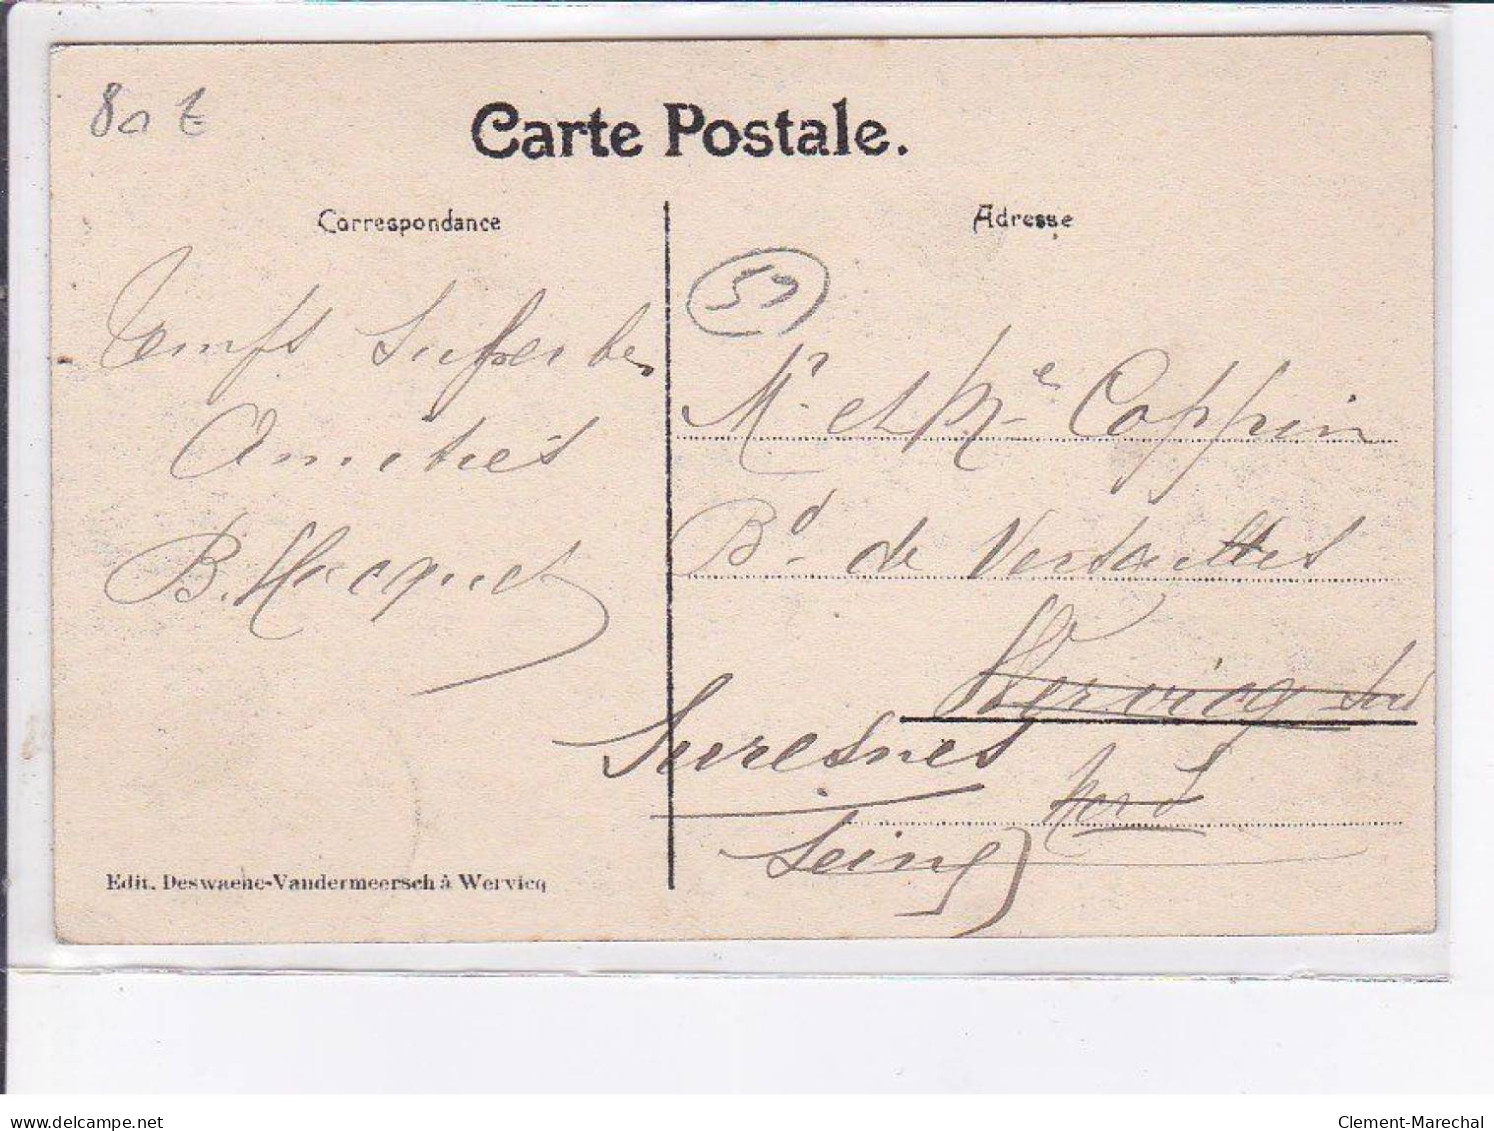 80 E
Carte Postale.
Correspondance
Adresse
59
Temps Superbe,
Amitiés
B. Hocquet
Mr et Me Coppin
Bd de Versailles
Wervicq Sud
Suresnes
Nord
Seine
Edit. Deswaene-Vandermeersch à Wervicq
delcampe.net
Clement-Marechal